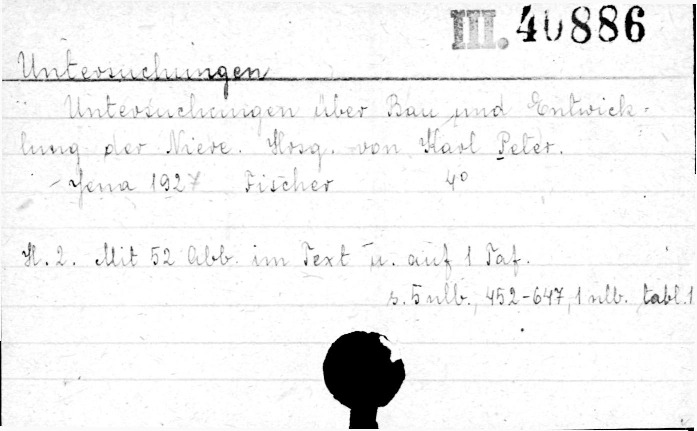 III. 40886
Untersuchungen
Untersuchungen über Bau und Entwick-
lung der Niere. Hrsg. von Karl Peter.
- Jena 1927 Fischer 4°
H. 2. Mit 52 Abb. im Text u. auf 1 Taf.
s. 5 nlb., 452-647, 1 nlb. tabl. 1